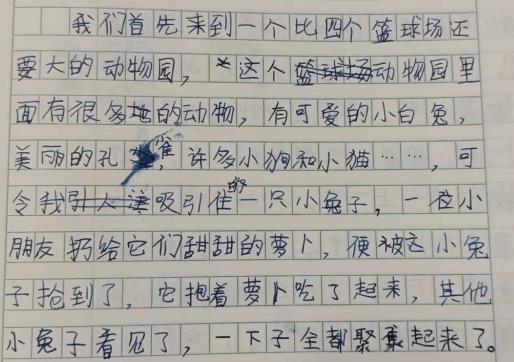 我们首先来到一个比四个篮球场还
要大的动物园，这个动物园里
面有很多地的动物，有可爱的小白兔，
美丽的孔雀，许多小狗和小猫……，可
令我吸引住的一只小兔子，一位小
朋友扔给它们甜甜的萝卜，便被这小兔
子抢到了，它抱着萝卜吃了起来，其他
小兔子看见了，一下子全都聚集起来了。